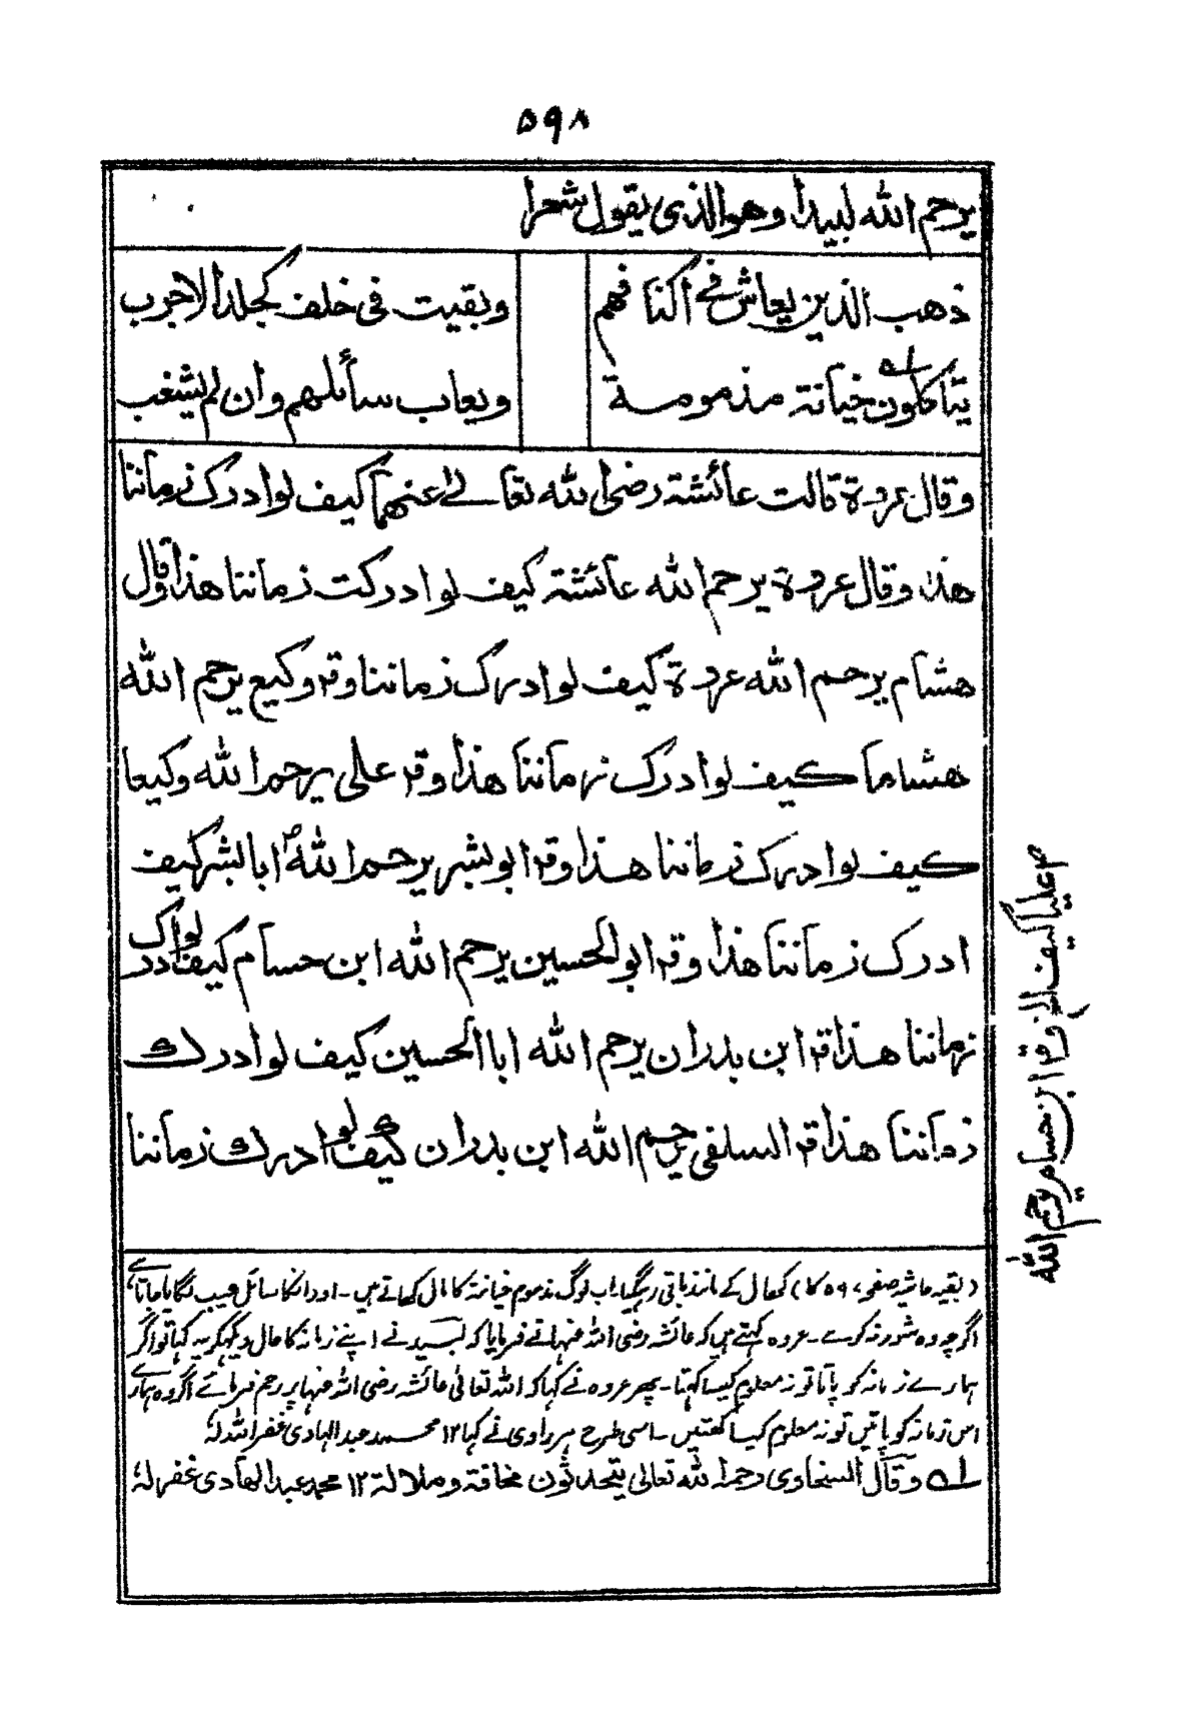 ۵۹۸
يرحم الله لبيدا وهو الذى يقول شعرا
ذهب الذين يعاش فے اكنافهم وبقيت فى خلف كجلد الاجرب
يتاكلون خيانة مذمومة ويعاب سائلهم وان لم يشغب
وقال عروة قالت عائشة رضى الله تعالے عنهما كيف لو ادرك زماننا
هذا وقال عروة يرحم الله عائشة كيف لو ادركت زماننا هذا وقال
هشام يرحم الله عروة كيف لو ادرك زماننا وقر وكيع يرحم الله
هشاما كيف لو ادرك زماننا هذا وقر على يرحم الله وكيعا
كيف لو ادرك زماننا هذا وقر ابو بشر يرحم الله ص ابا بشر كيف
ادرك زماننا هذا وقر ابو الحسين يرحم الله ابن حسام كيف لو ادرك
زماننا هذا قر ابن بدران يرحم الله ابا الحسين كيف لو ادرك
زماننا هذا قر السلفى يرحم الله ابن بدران كيف لو ادرك زماننا
ص عليا كيف الخ وقر ابن حسام يرحم الله
(بقیہ حاشیہ صفحہ ۵۹۷ کا) کھال کے مانند باقی رہگیا۔ اب لوگ مذموم خیانۃ کا مال کھاتے ہیں۔ اور انکا سائل عیب لگایا جاتا ہے
اگرچہ وہ شور نہ کرے۔ عروہ کہتے ہیں کہ عائشہ رضی اللہ عنہا نے فرمایا کہ لبید نے اپنے زمانہ کا حال دیکھکر یہ کہا تو اگر
ہمارے زمانہ کو پاتا تو نہ معلوم کیسا کہتا۔ پھر عروہ نے کہا کہ اللہ تعالیٰ عائشہ رضی اللہ عنہا پر رحم فرمائے اگر وہ ہمارے
اس زمانہ کو پاتیں تو نہ معلوم کیسا کہتیں۔ اسی طرح ہر راوی نے کہا ۱۲ محمد عبد الہادی غفر اللہ لہ
لہ وقال السخاوى رحمه الله تعالى يتحدثون مخافة وملالة ۱۲ محمد عبد الهادى غفر له